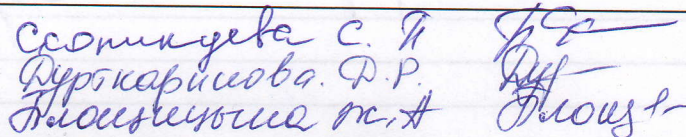 Скопинцева С. П
Дурткаринова. Д.Р.
Площицына Ж.А Площ